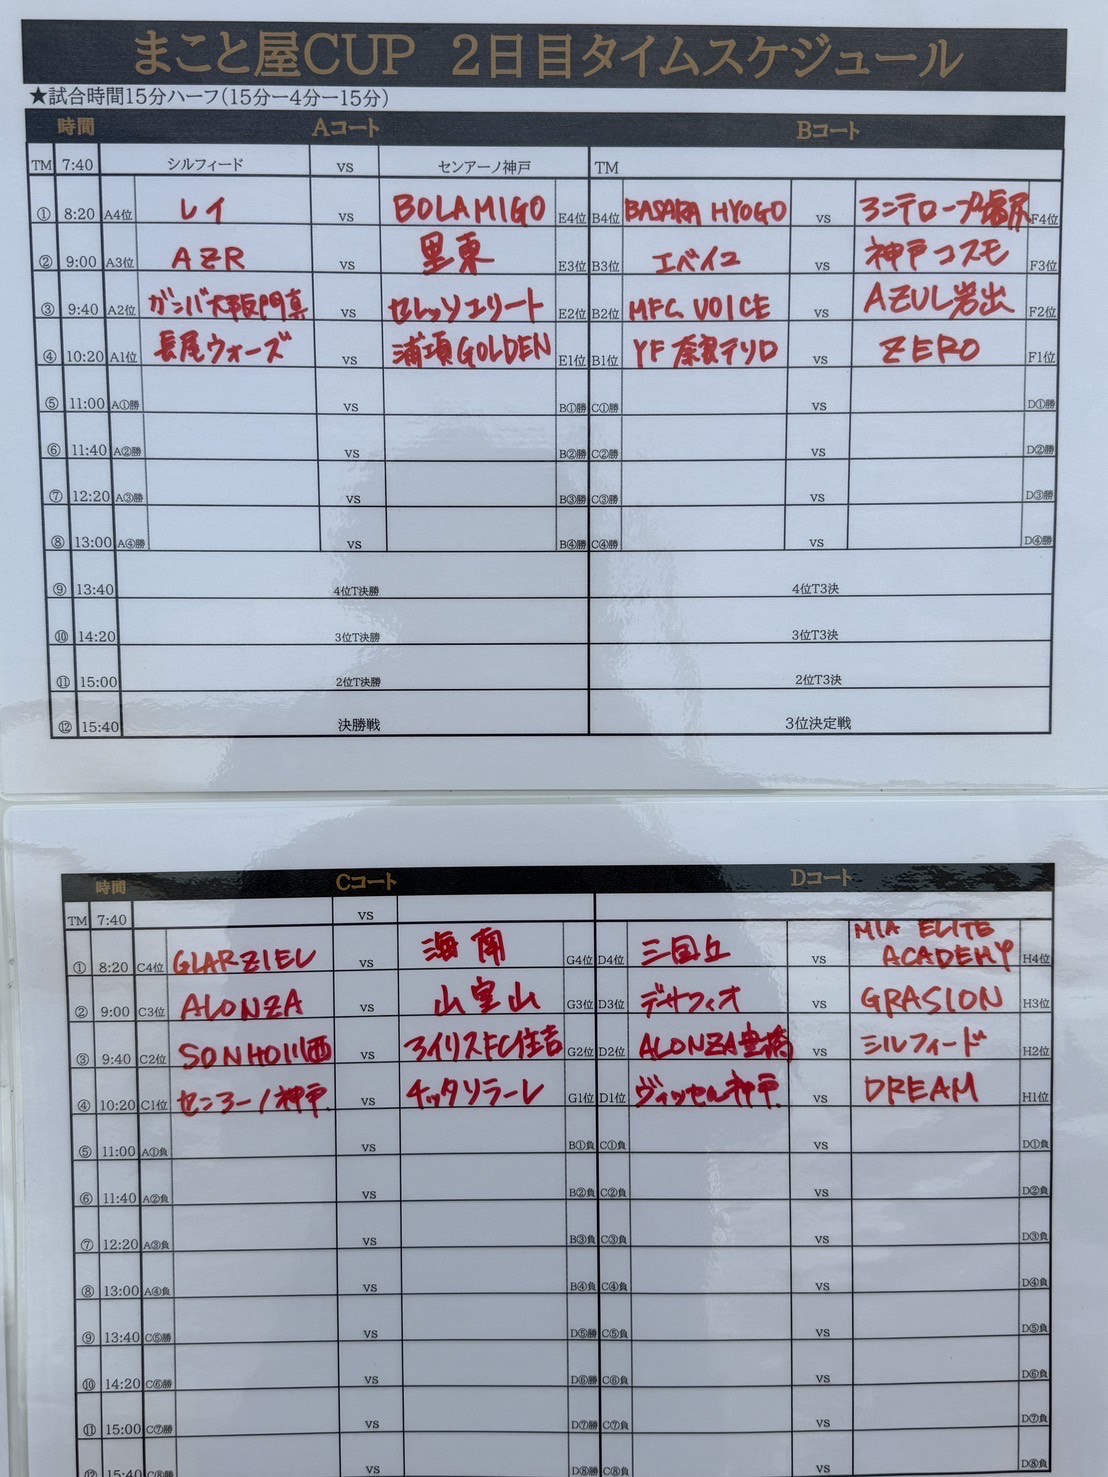 まこと屋CUP 2日目タイムスケジュール
★試合時間15分ハーフ(15分ー4分ー15分)
時間 Aコート Bコート
TM 7:40 シルフィード vs センアーノ神戸 TM
① 8:20 A4位 レイ vs BOLAMIGO E4位 B4位 BASARA HYOGO vs アンテロープ塩尻 F4位
② 9:00 A3位 AZR vs 里東 E3位 B3位 エベイユ vs 神戸コスモ F3位
③ 9:40 A2位 ガンバ大阪門真 vs セレッソエリート E2位 B2位 MFC VOICE vs AZUL岩出 F2位
④ 10:20 A1位 長尾ウォーズ vs 浦項GOLDEN E1位 B1位 YF奈良テソロ vs ZERO F1位
⑤ 11:00 A①勝 vs B①勝 C①勝 vs D①勝
⑥ 11:40 A②勝 vs B②勝 C②勝 vs D②勝
⑦ 12:20 A③勝 vs B③勝 C③勝 vs D③勝
⑧ 13:00 A④勝 vs B④勝 C④勝 vs D④勝
⑨ 13:40 4位T決勝 4位T3決
⑩ 14:20 3位T決勝 3位T3決
⑪ 15:00 2位T決勝 2位T3決
⑫ 15:40 決勝戦 3位決定戦
時間 Cコート Dコート
TM 7:40 vs
① 8:20 C4位 GLARZIEL vs 海南 G4位 D4位 三国丘 vs MIA ELITE ACADEMY H4位
② 9:00 C3位 ALONZA vs 山室山 G3位 D3位 デサフィオ vs GRASION H3位
③ 9:40 C2位 SONHO川西 vs アイリスFC住吉 G2位 D2位 ALONZA豊橋 vs シルフィード H2位
④ 10:20 C1位 センアーノ神戸 vs チッタソラーレ G1位 D1位 ヴィッセル神戸 vs DREAM H1位
⑤ 11:00 A①負 vs B①負 C①負 vs D①負
⑥ 11:40 A②負 vs B②負 C②負 vs D②負
⑦ 12:20 A③負 vs B③負 C③負 vs D③負
⑧ 13:00 A④負 vs B④負 C④負 vs D④負
⑨ 13:40 C⑤勝 vs D⑤勝 C⑤負 vs D⑤負
⑩ 14:20 C⑥勝 vs D⑥勝 C⑥負 vs D⑥負
⑪ 15:00 C⑦勝 vs D⑦勝 C⑦負 vs D⑦負
⑫ 15:40 C⑧勝 vs D⑧勝 C⑧負 vs D⑧負